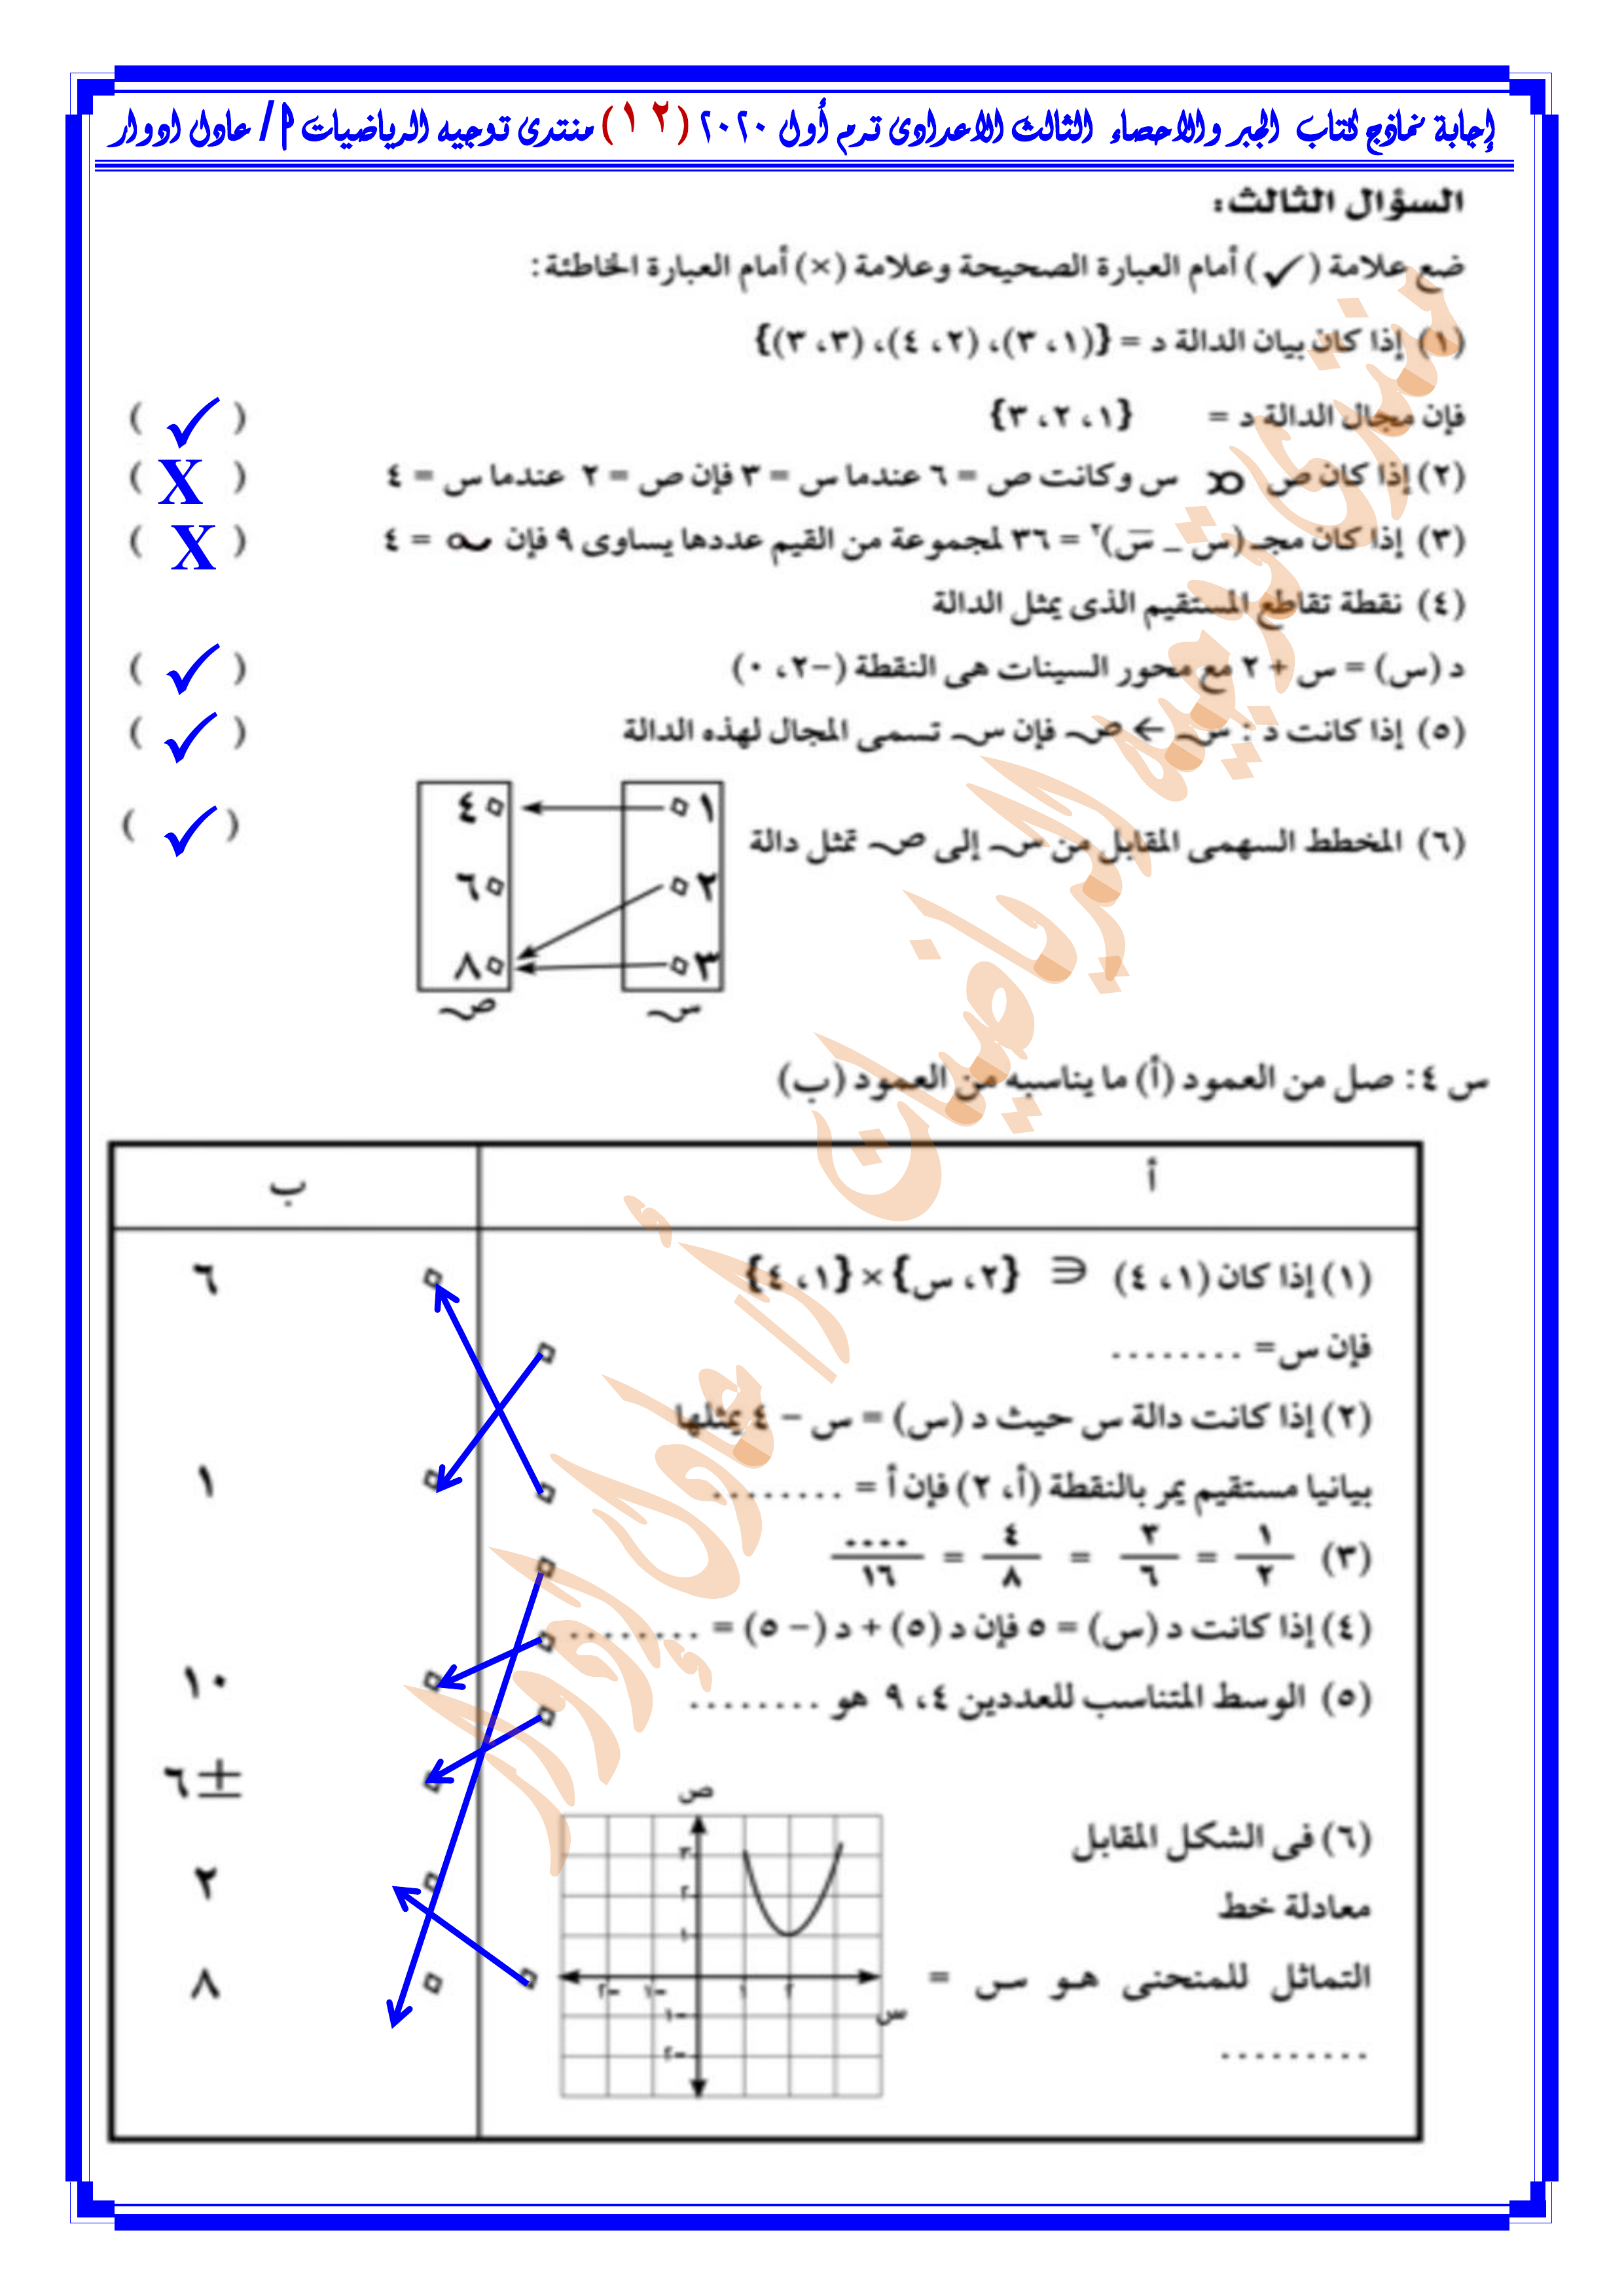 إجابة نماذج كتاب الجبر والاحصاء الثالث الاعدادى ترم أول ٢٠٢٠ (١٢) منتدى توجيه الرياضيات م/ عادل ادوار
السؤال الثالث:
ضع علامة (✓) أمام العبارة الصحيحة وعلامة (×) أمام العبارة الخاطئة:
(١) إذا كان بيان الدالة د = {(١، ٣)، (٢، ٤)، (٣، ٣)}
فإن مجال الدالة د = {١، ٢، ٣} ( ✓ )
(٢) إذا كان ص ∝ س وكانت ص = ٦ عندما س = ٣ فإن ص = ٢ عندما س = ٤ ( X )
(٣) إذا كان مجـ (س _ س̄)٢ = ٣٦ لمجموعة من القيم عددها يساوى ٩ فإن σ = ٤ ( X )
(٤) نقطة تقاطع المستقيم الذى يمثل الدالة
د (س) = س + ٢ مع محور السينات هى النقطة (–٢، ٠) ( ✓ )
(٥) إذا كانت د : سـ ← صـ فإن سـ تسمى المجال لهذه الدالة ( ✓ )
(٦) المخطط السهمى المقابل من سـ إلى صـ تمثل دالة ( ✓ )
١ ٤
٢ ٦
٣ ٨
سـ صـ
س ٤: صل من العمود (أ) ما يناسبه من العمود (ب)
أ ب
(١) إذا كان (١، ٤) ∈ {٢، س} × {١، ٤} ٦
فإن س= ........
(٢) إذا كانت دالة س حيث د (س) = س – ٤ يمثلها
بيانيا مستقيم يمر بالنقطة (أ، ٢) فإن أ = ........ ١
(٣) ١/٢ = ٣/٦ = ٤/٨ = ..../١٦
(٤) إذا كانت د (س) = ٥ فإن د (٥) + د (– ٥) = ........
١٠
(٥) الوسط المتناسب للعددين ٤، ٩ هو ........
±٦
(٦) فى الشكل المقابل
٢
معادلة خط
التماثل للمنحنى هـو سـ =
٨
.........
ص
٣
٢
١
٢– ١– ١ ٢
س
١–
٢–
منتدى توجيه الرياضيات أ/ عادل إدوار